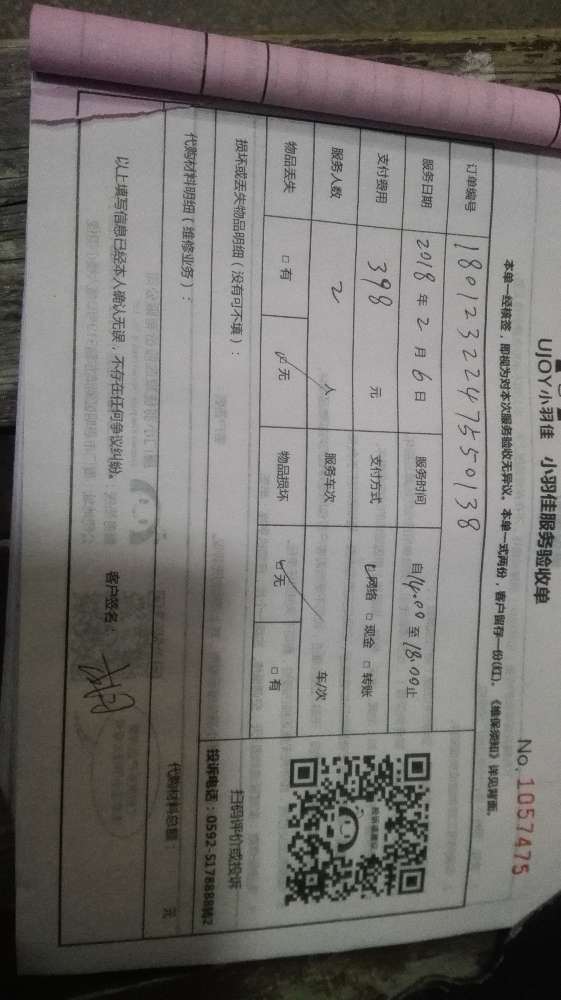 UJOY小羽佳 小羽佳服务验收单
No. 1057475
本单一经核签，即视为对本次服务验收无异议。本单一式两份，客户留存一份(红)。《维保须知》详见背面。
订单编号 1801232247550138
服务日期 2018 年 2 月 6 日 服务时间 自14.00 至 18.00止
支付费用 398 元 支付方式 网络 □ 现金 □ 转账
服务人数 2 人 服务车次 车/次
物品丢失 □ 有 无 物品损坏 无 □ 有
扫码评价或投诉
投诉电话：0592-5178888转2
损坏或丢失物品明细（没有可不填）：
代购材料明细（维修业务）：
代购材料总额： 元
以上填写信息已经本人确认无误，不存在任何争议纠纷。 客户签名：